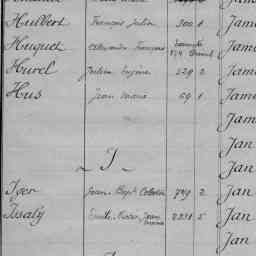 Hulbert François Julien 300 1 Jam
Huguet Alexandre François Jam
Hurel Julien Eugène 529 2 Jam
Hus Jean Marie 69 1 Jam
Jam
Jan
I
Jan
Iger Jean Bapt. 749 2 Jan
Issaly Emile Victor Jean 2231 5 Jan
Jan